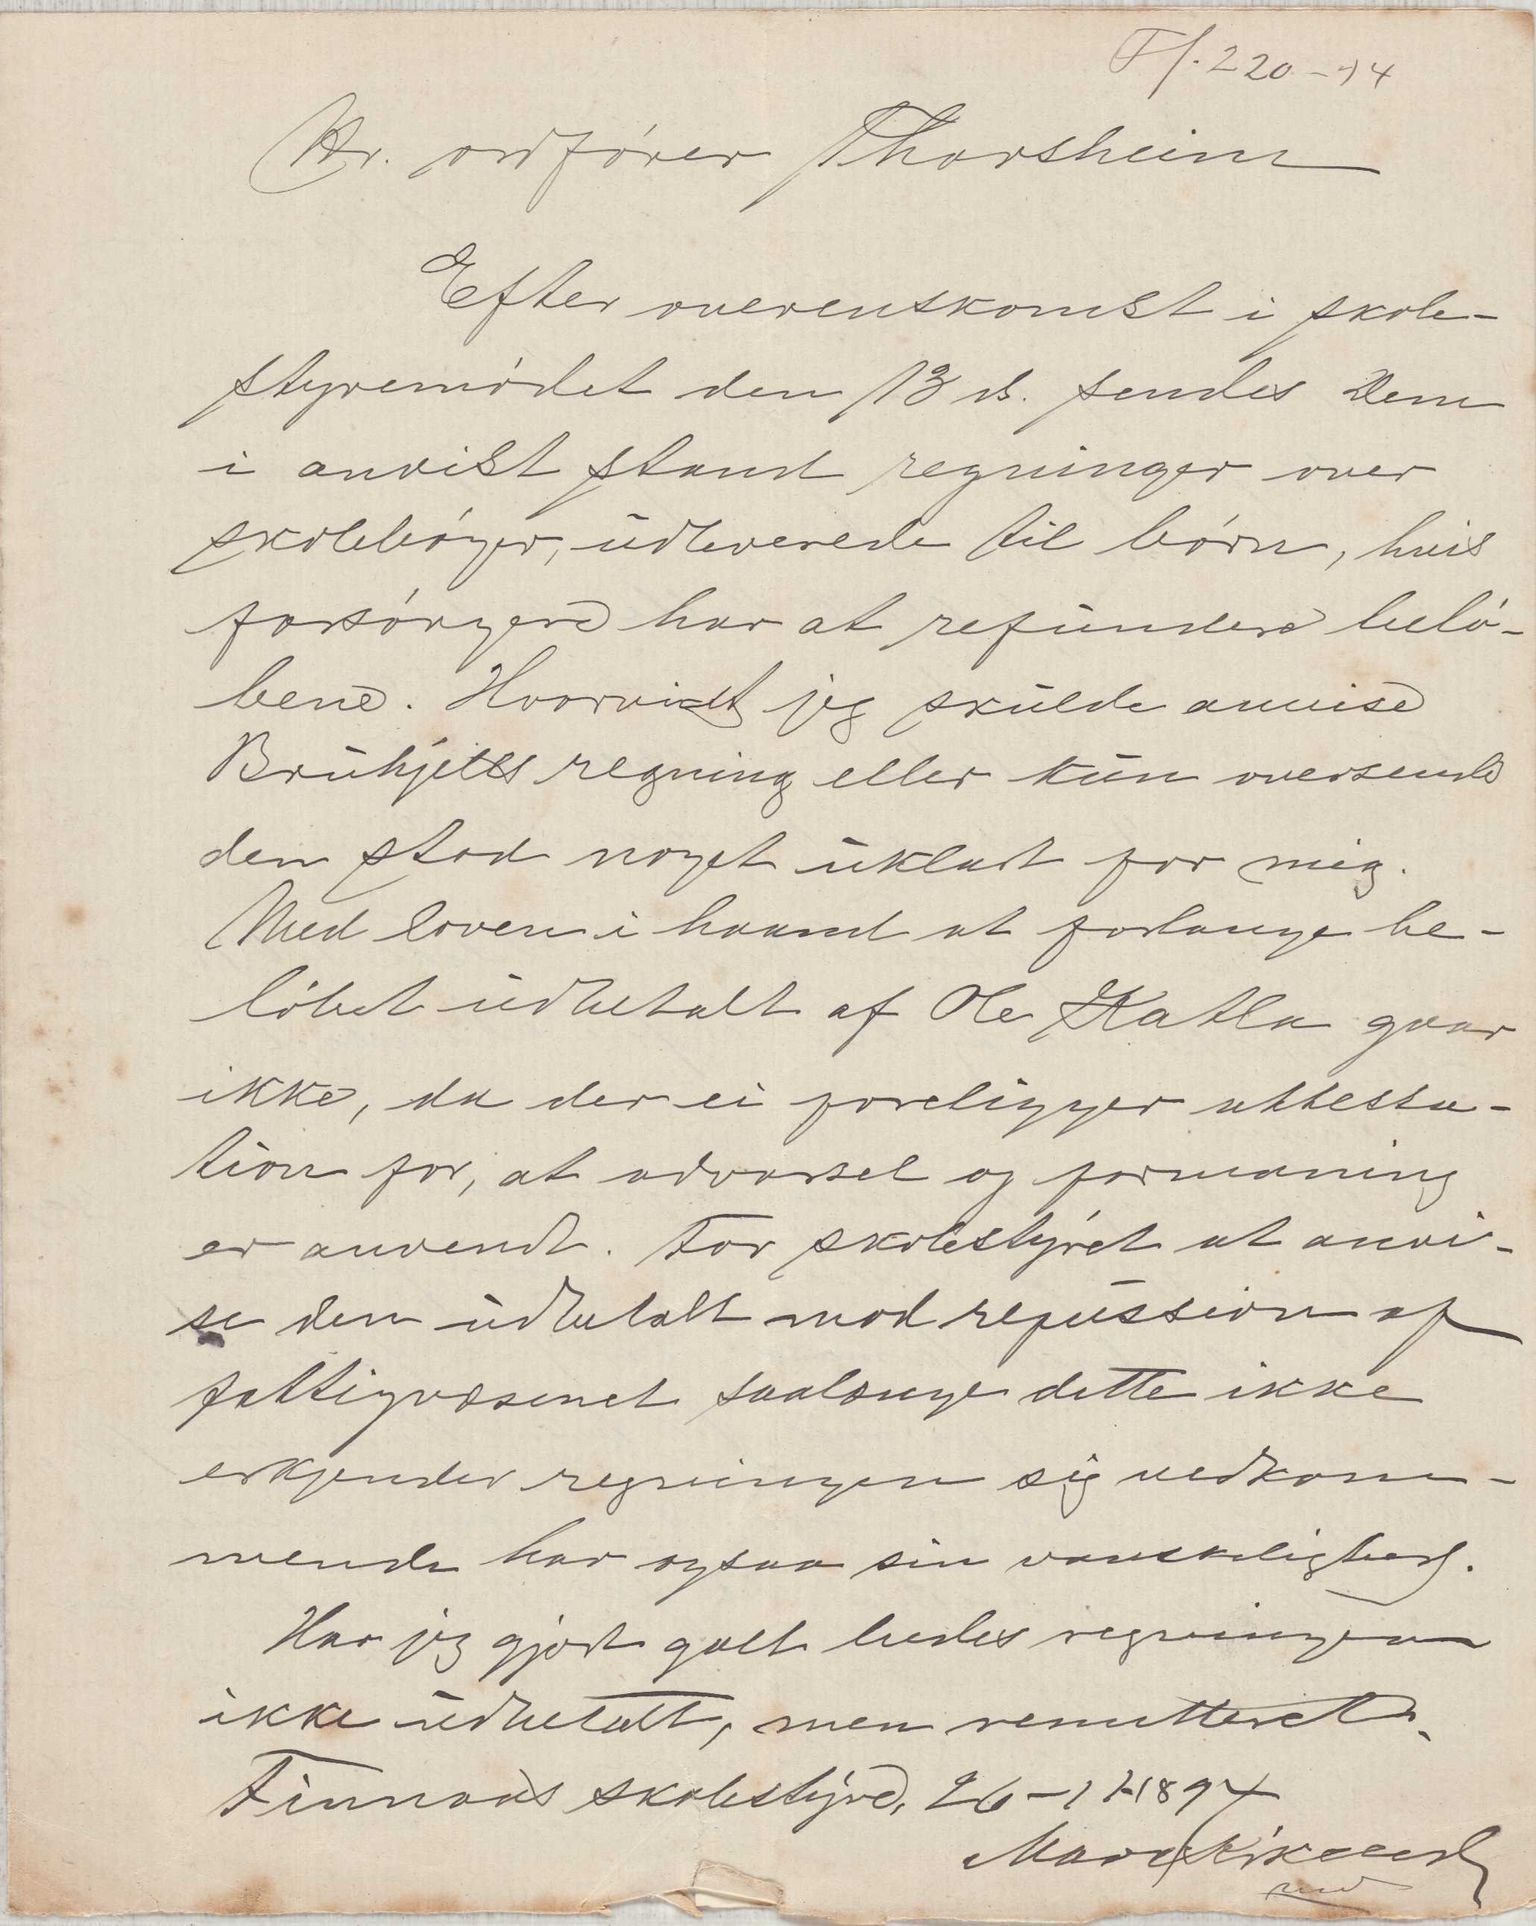 Hr. ordfører Thorsheim
Efter overenskomst i skole-
styremødet den 13 ds. sendes Dem
i anvist stand regninger over
skolebøger, udleverede til børn, hvis
forsørgere har at refundere belø-
bene. Hvorvidt jeg skulde anvise
regning eller kun oversende
den stod noget uklart for mig.
Med loven i haand at forlange be-
løbet udbetalt af Ole Hatla gaar
ikke, da der ei foreligger attesta-
tion for, at advarsel og formaning
er anvendt. For skolestyret at anvi-
se den udbetalt mod refussion af
fattigvæsenet saalænge dette ikke
erkjender regningen sig vedkom-
mende har ogsaa sin vanskelighed.
Har jeg gjort galt bedes regningen
ikke udbetalt, men remitteret.
Finnaas skolestyre, 26-11-1894